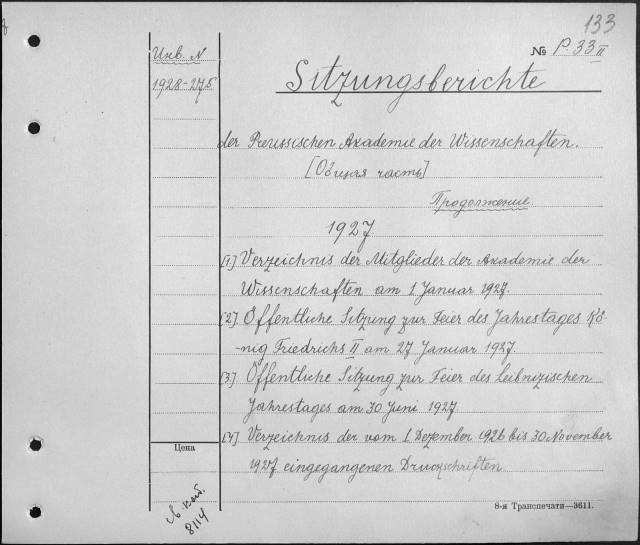 133
Инв. N
1928-275
№ P. 33 II
Sitzungsberichte
der Preussischen Akademie der Wissenschaften.
[Общая часть]
Продолжение
1927
[1.] Verzeichnis der Mitglieder der Akademie der
Wissenschaften am 1 Januar 1927.
[2.] Öffentliche Sitzung zur Feier des Jahrestages Kö-
-nig Friedrichs II am 27 Januar 1927.
[3.] Öffentliche Sitzung zur Feier des Leibnizischen
Jahrestages am 30 Juni 1927
[4.] Verzeichnis der vom 1 Dezember 1926 bis 30 November
1927 eingegangenen Druckschriften
Цена
8114
8-я Транспечати—3611.